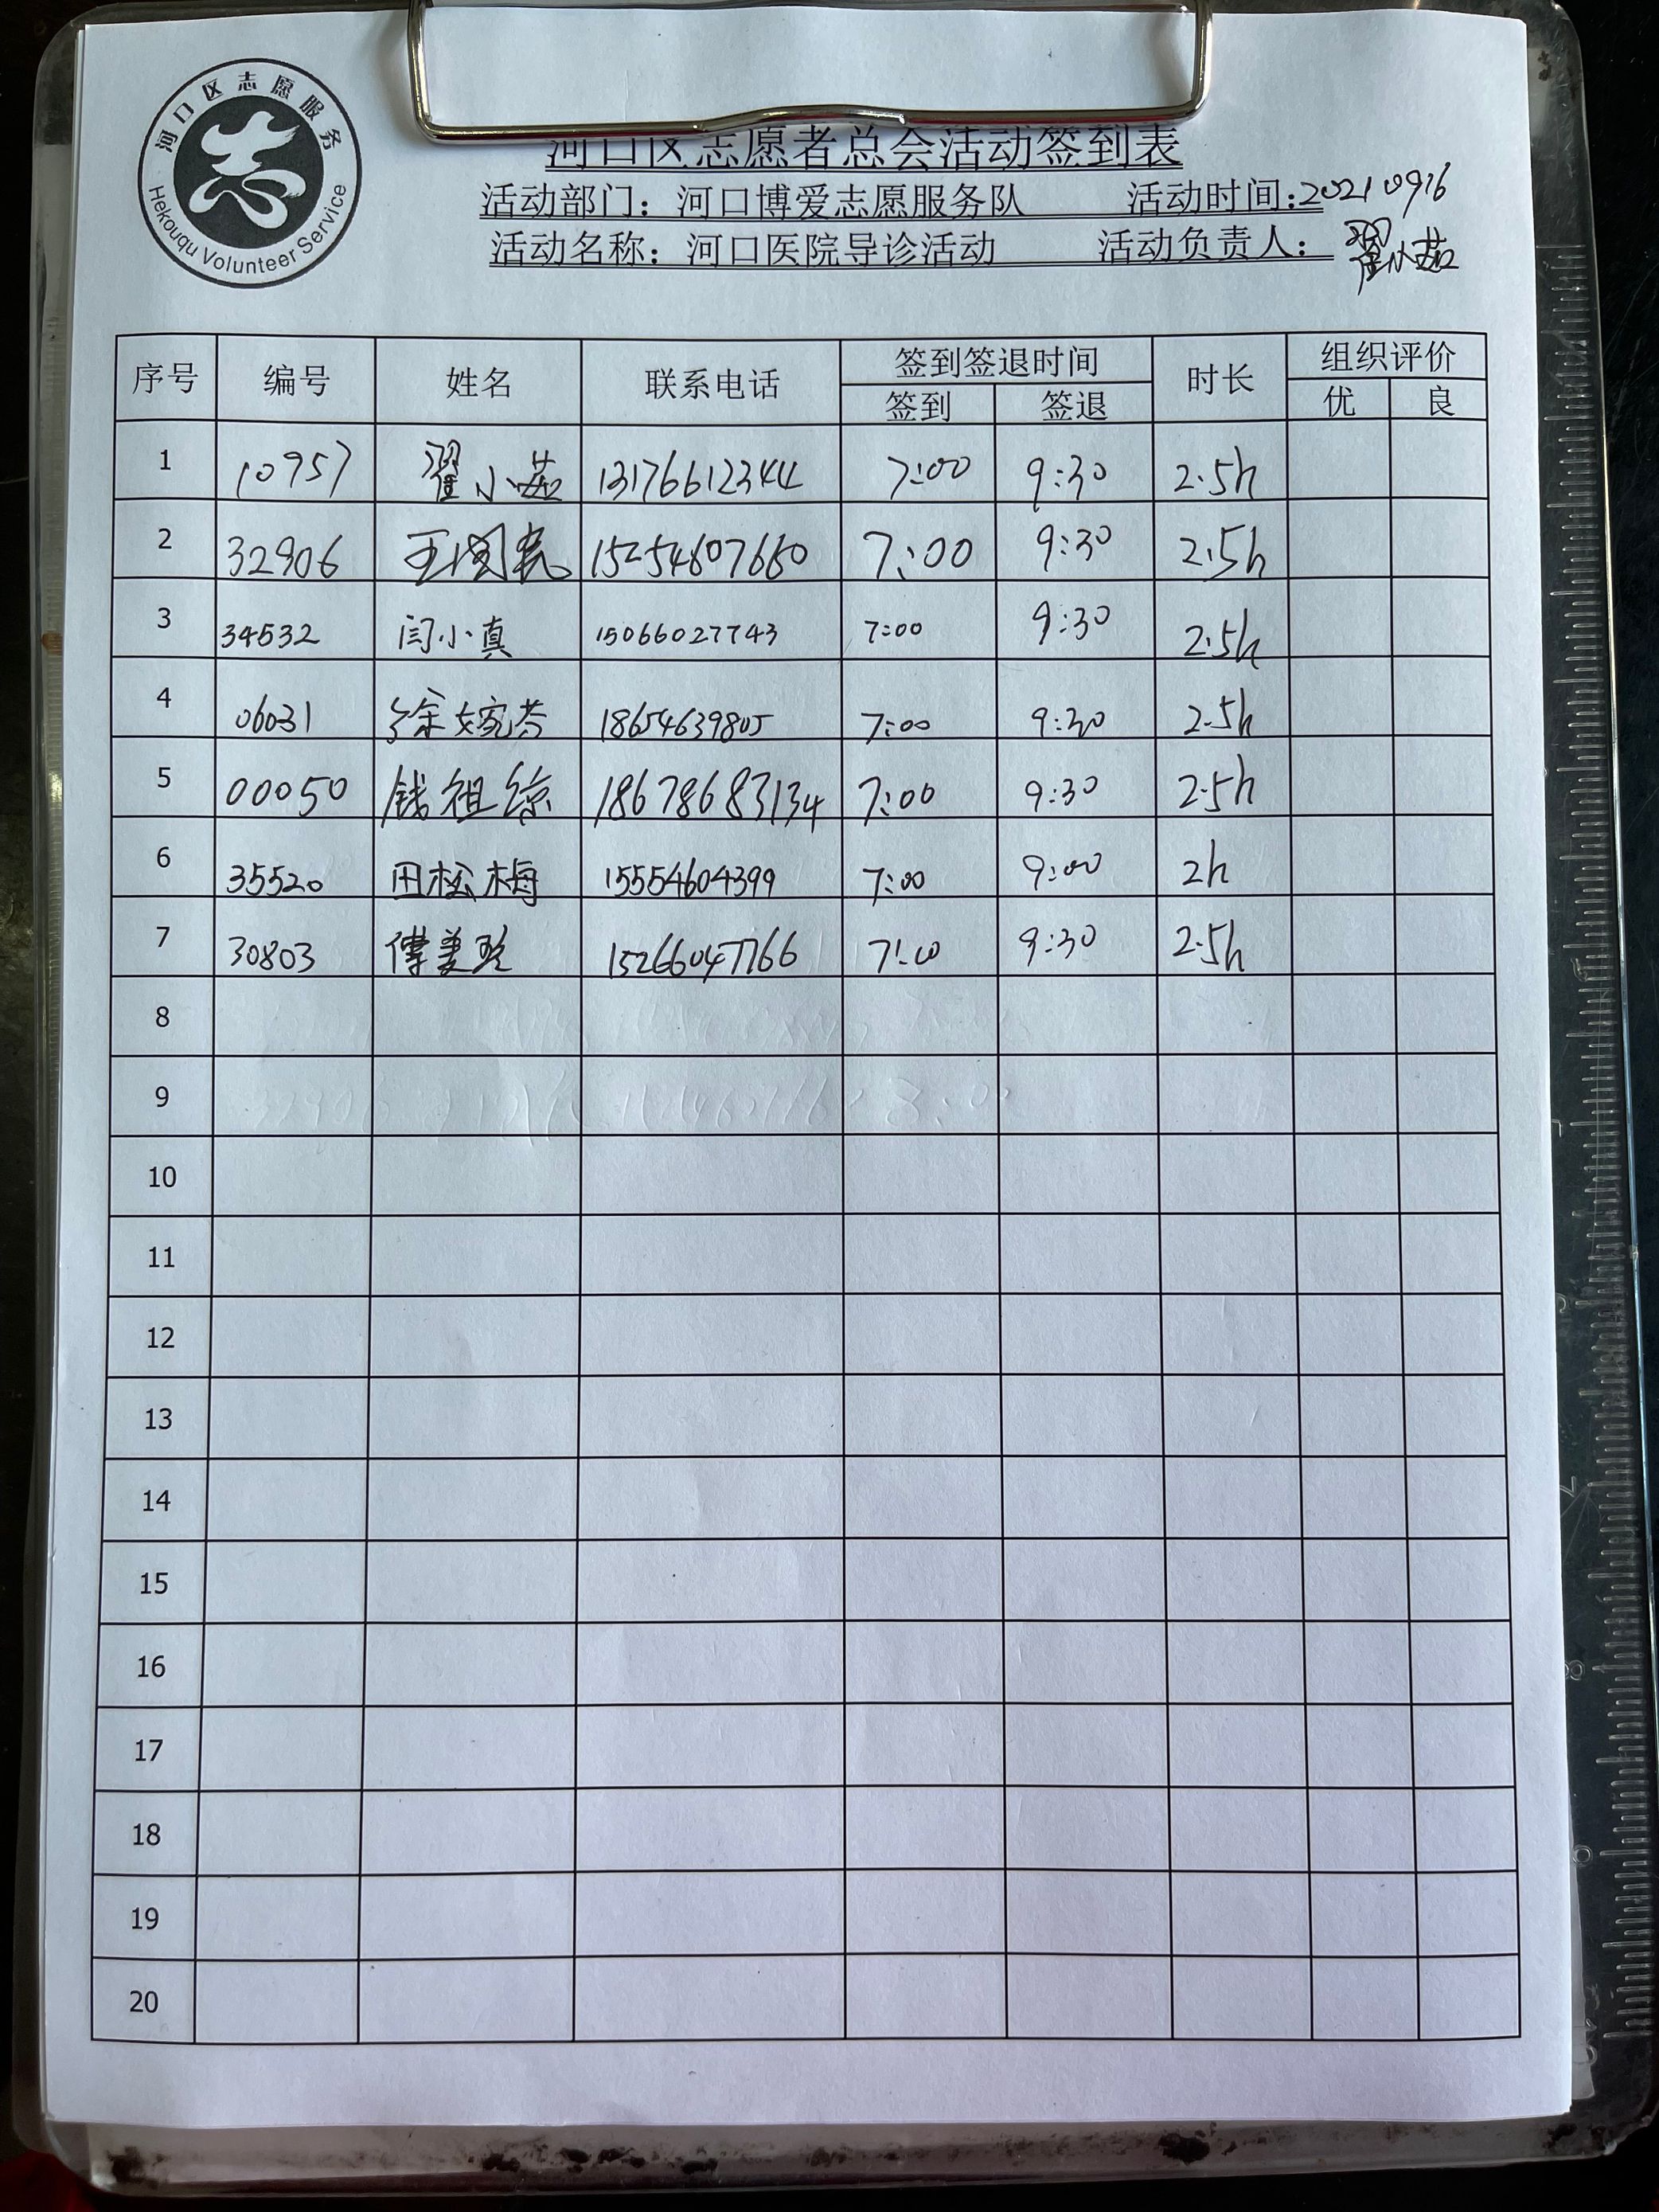 河口区志愿服务
Hekouqu Volunteer Service
河口区志愿者总会活动签到表
活动部门：河口博爱志愿服务队 活动时间:20210916
活动名称：河口医院导诊活动 活动负责人：翟小茹
序号 编号 姓名 联系电话 签到签退时间 时长 组织评价
签到 签退 优 良
1 10957 翟小茹 13176612344 7:00 9:30 2.5h
2 32906 王国 15254607660 7:00 9:30 2.5h
3 34532 闫小真 15066027743 7:00 9:30 2.5h
4 06031 徐婉芬 18654639805 7:00 9:30 2.5h
5 00050 钱祖 18678683134 7:00 9:30 2.5h
6 35520 田松梅 15554604399 7:00 9:00 2h
7 30803 傅美玲 15266047766 7:00 9:30 2.5h
8
9
10
11
12
13
14
15
16
17
18
19
20